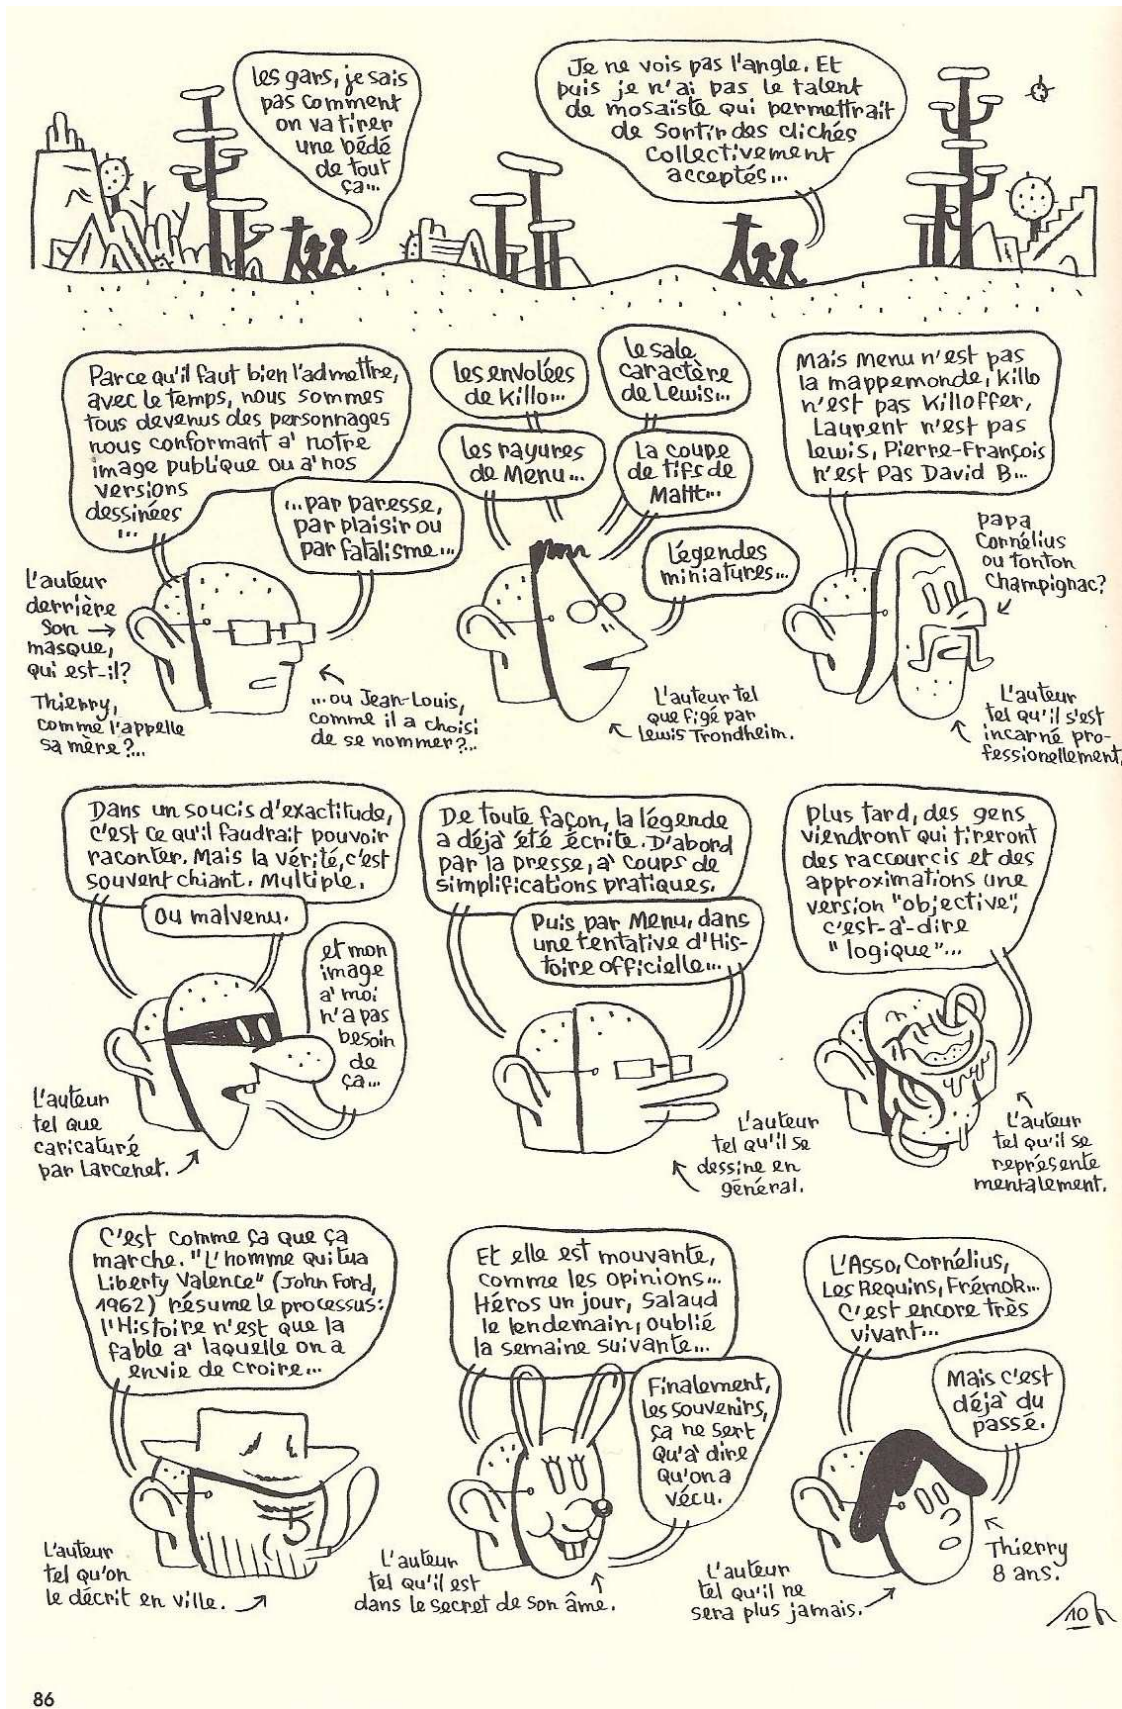 les gars, je sais
pas comment
on va tirer
une bédé
de tout
ça...
Je ne vois pas l'angle. Et
puis je n'ai pas le talent
de mosaïste qui permettrait
de sortir des clichés
collectivement
acceptés...
Parce qu'il faut bien l'admettre,
avec le temps, nous sommes
tous devenus des personnages
nous conformant à notre
image publique ou à nos
versions
dessinées
...
...par paresse,
par plaisir ou
par fatalisme...
L'auteur
derrière
son
masque,
qui est-il?
Thierry,
comme l'appelle
sa mère?...
...ou Jean-Louis,
comme il a choisi
de se nommer?...
les envolées
de Killo...
le sale
caractère
de Lewis...
les rayures
de Menu...
La coupe
de tifs de
Matt...
Légendes
miniatures...
L'auteur tel
que figé par
Lewis Trondheim.
Mais Menu n'est pas
la mappemonde, Killo
n'est pas Killoffer,
Laurent n'est pas
Lewis, Pierre-François
n'est pas David B...
papa
Cornélius
ou tonton
Champignac?
L'auteur
tel qu'il s'est
incarné pro-
fessionellement.
Dans un soucis d'exactitude,
c'est ce qu'il faudrait pouvoir
raconter. Mais la vérité, c'est
souvent chiant. Multiple.
Ou malvenu.
et mon
image
à moi
n'a pas
besoin
de
ça...
L'auteur
tel que
caricaturé
par Larcenet.
De toute façon, la légende
a déjà été écrite. D'abord
par la presse, à coups de
simplifications pratiques.
Puis par Menu, dans
une tentative d'His-
toire officielle...
L'auteur
tel qu'il se
dessine en
général.
Plus tard, des gens
viendront qui tireront
des raccourcis et des
approximations une
version "objective",
c'est-à-dire
"logique"...
L'auteur
tel qu'il se
représente
mentalement.
C'est comme ça que ça
marche. "L'homme qui tua
Liberty Valence" (John Ford,
1962) résume le processus:
l'Histoire n'est que la
fable à laquelle on a
envie de croire...
L'auteur
tel qu'on
le décrit en ville.
Et elle est mouvante,
comme les opinions...
Héros un jour, Salaud
le lendemain, oublié
la semaine suivante...
Finalement,
les souvenirs,
ça ne sert
qu'à dire
qu'on a
vécu.
L'auteur
tel qu'il est
dans le secret de son âme.
L'Asso, Cornélius,
Les Requins, Frémok...
C'est encore très
vivant...
Mais c'est
déjà du
passé.
Thierry
8 ans.
L'auteur
tel qu'il ne
sera plus jamais.
10
86